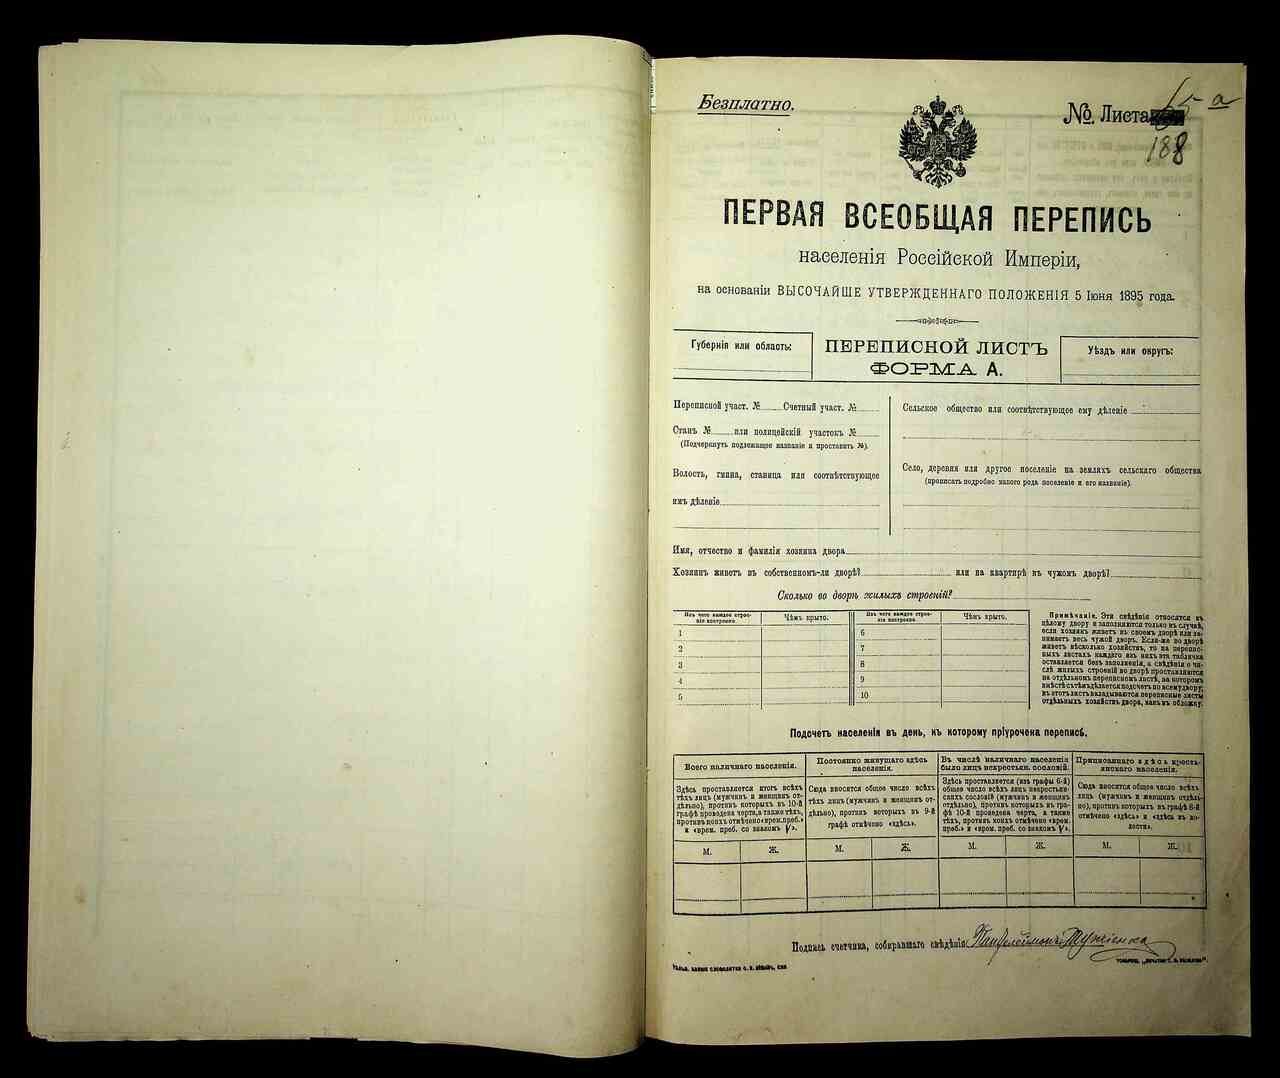 Безплатно.
№ Листа 65 а
188
ПЕРВАЯ ВСЕОБЩАЯ ПЕРЕПИСЬ
населенія Россійской Имперіи,
на основаніи ВЫСОЧАЙШЕ УТВЕРЖДЕННАГО ПОЛОЖЕНІЯ 5 Іюня 1895 года.
Губернія или область:
ПЕРЕПИСНОЙ ЛИСТЪ
ФОРМА А.
Уѣздъ или округъ:
Переписной участ. № Счетный участ. №
Станъ № или полицейскій участокъ №
(Подчеркнуть подлежащее названіе и проставить №).
Волость, гмина, станица или соотвѣтствующее
имъ дѣленіе
Сельское общество или соотвѣтствующее ему дѣленіе
Село, деревня или другое поселеніе на земляхъ сельскаго общества
(прописать подробно какого рода поселеніе и его названіе).
Имя, отчество и фамилія хозяина двора
Хозяинъ живетъ въ собственномъ-ли дворѣ? или на квартирѣ въ чужомъ дворѣ?
Сколько во дворѣ жилыхъ строеній?
Изъ чего каждое строе-
ніе построено.
Чѣмъ крыто.
1
2
3
4
5
Изъ чего каждое строе-
ніе построено.
Чѣмъ крыто.
6
7
8
9
10
Примѣчаніе. Эти свѣдѣнія относятся къ
цѣлому двору и заполняются только въ случаѣ,
если хозяинъ живетъ въ своемъ дворѣ или за-
нимаетъ весь чужой дворъ. Если-же во дворѣ
живетъ нѣсколько хозяйствъ, то на перепис-
ныхъ листахъ каждаго изъ нихъ эта табличка
оставляется безъ заполненія, а свѣдѣнія о чи-
слѣ жилыхъ строеній во дворѣ проставляются
на отдѣльномъ переписномъ листѣ, на которомъ
вмѣстѣ съ тѣмъ дѣлается подсчетъ по всему двору;
въ этотъ листъ вкладываются переписные листы
отдѣльныхъ хозяйствъ двора, какъ въ обложку.
Подсчетъ населенія въ день, къ которому пріурочена перепись.
Всего наличнаго населенія.
Здѣсь проставляется итогъ всѣхъ
тѣхъ лицъ (мужчинъ и женщинъ от-
дѣльно), противъ которыхъ въ 10-й
графѣ проведена черта, а также тѣхъ,
противъ коихъ отмѣчено «врем. преб.»
и «врем. преб. со знакомъ V».
М. Ж.
Постоянно живущаго здѣсь
населенія.
Сюда вносится общее число всѣхъ
тѣхъ лицъ (мужчинъ и женщинъ от-
дѣльно), противъ которыхъ въ 9-й
графѣ отмѣчено «здѣсь».
М. Ж.
Въ числѣ наличнаго населенія
было лицъ некрестьян. сословій.
Здѣсь проставляется (изъ графы 6-й)
общее число всѣхъ лицъ некрестьян-
скихъ сословій (мужчинъ и женщинъ
отдѣльно), противъ которыхъ въ гра-
фѣ 10-й проведена черта, а также
тѣхъ, противъ коихъ отмѣчено «врем.
преб.» и «врем. преб. со знакомъ V».
М. Ж.
Приписаннаго здѣсь кресть-
янскаго населенія.
Сюда вносится общее число всѣхъ
лицъ (мужчинъ и женщинъ отдѣль-
но), противъ которыхъ въ графѣ 8-й
отмѣчено «здѣсь» и «здѣсь въ во-
лости».
М. Ж.
Подпись счетчика, собиравшаго свѣдѣнія Пантелеимонъ